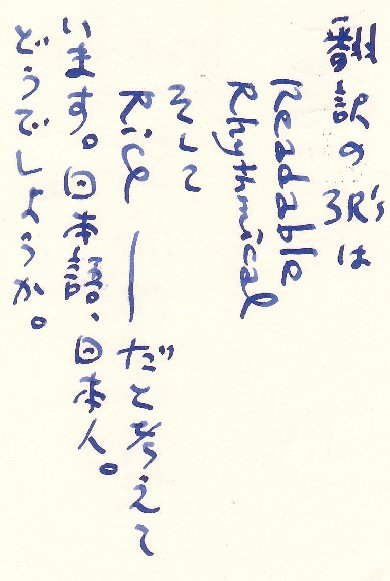 翻訳の3R'sは
Readable
Rhythmical
そして
Rice ——だと考えて
います。日本語、日本人。
どうでしようか。